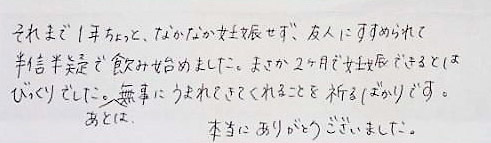 それまで1年ちょっと、なかなか妊娠せず、友人にすすめられて
半信半疑で飲み始めました。まさか2ヶ月で妊娠できるとは
びっくりでした。無事にうまれてきてくれることを祈るばかりです。
あとは、
本当にありがとうございました。